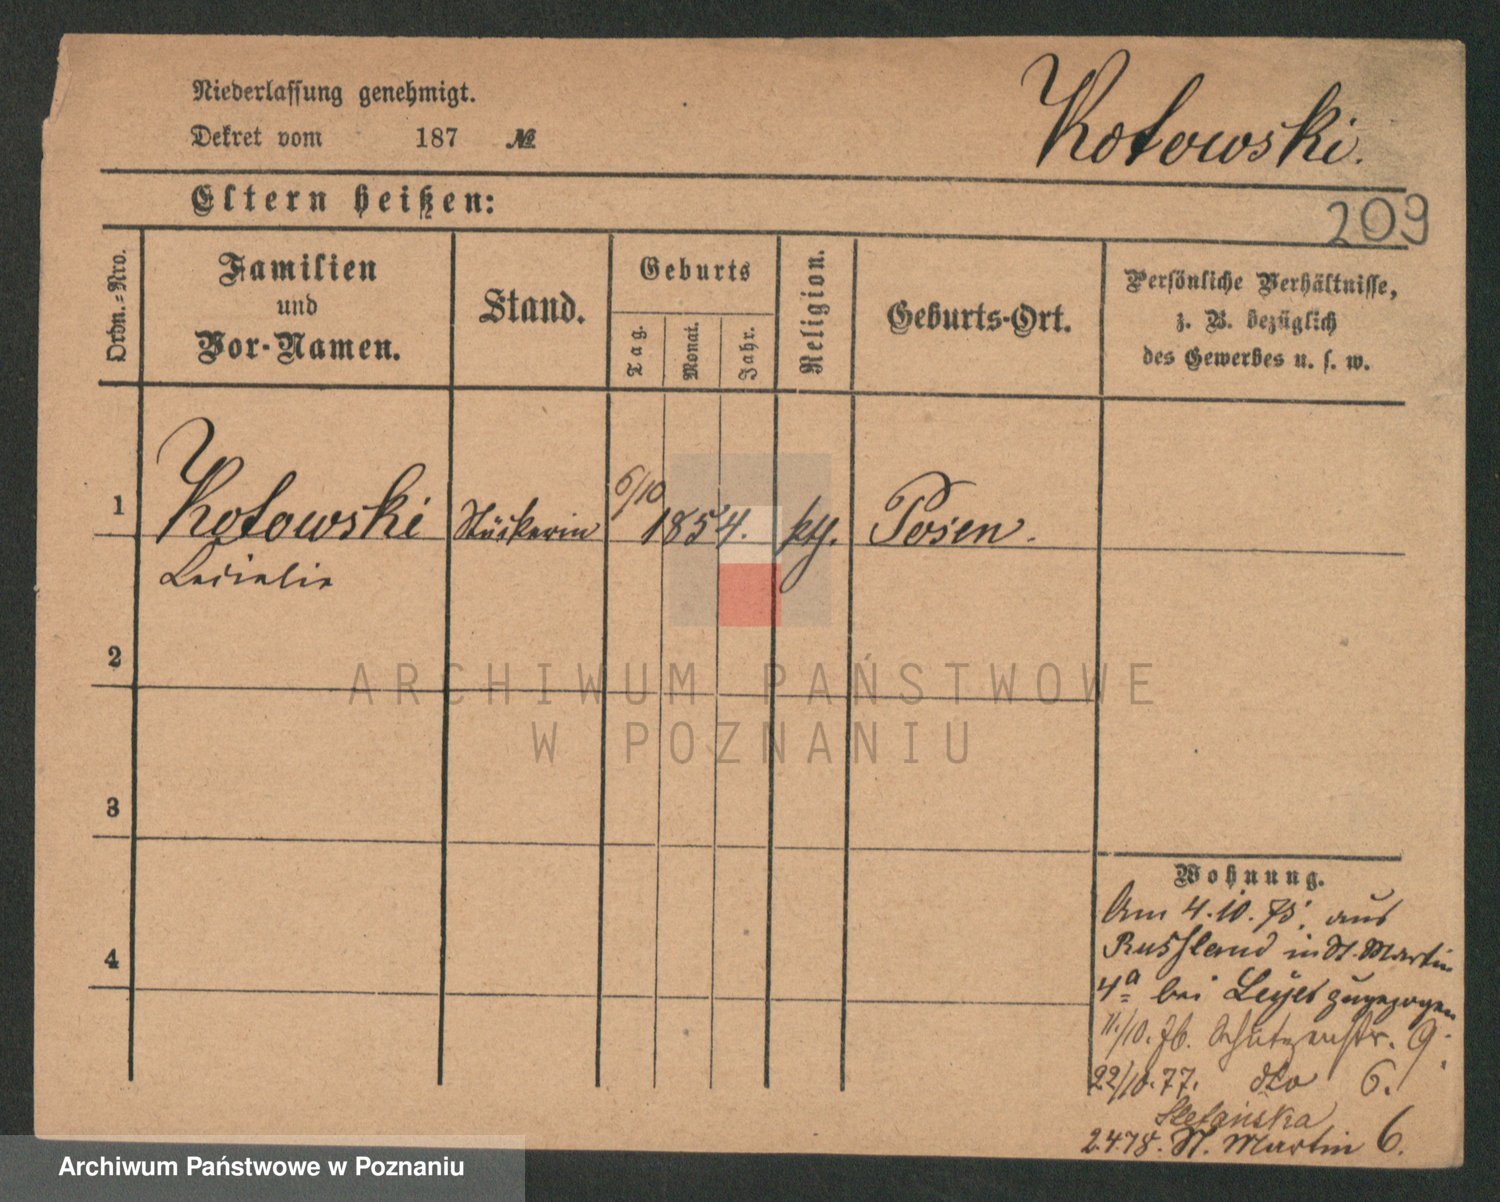 Niederlassung genehmigt.
Dekret vom 187 №
Kotowski.
Eltern heißen:
209
Ordn.=Nro.
Familien
und
Vor-Namen.
Stand.
Geburts
Tag.
Monat.
Jahr.
Religion.
Geburts-Ort.
Persönliche Verhältnisse,
z. B. bezüglich
des Gewerbes u. s. w.
1
Kotowski
6/10
1854.
kth.
Posen.
2
ARCHIWUM PAŃSTWOWE
W POZNANIU
3
4
Wohnung.
Am 4.10.75. aus
Russland in St. Martin
4a bei zugezogen
11/10.76. Schützenstr. 9.
22/10.77. dto 6.
2.4.78. St. Martin 6.
Archiwum Państwowe w Poznaniu